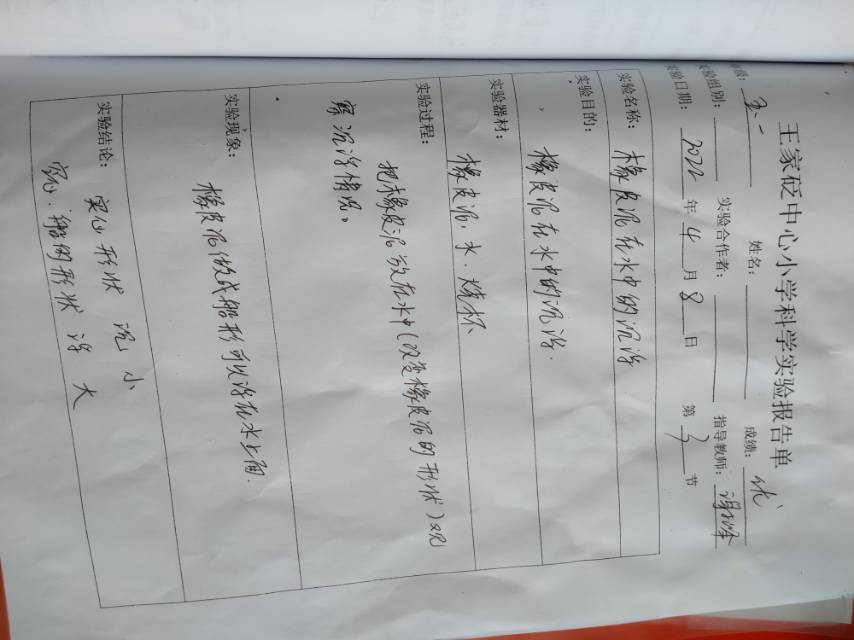 王家砭中心小学科学实验报告单
年级: 五一 姓名: 成绩: 优
实验组别: 实验合作者: 指导教师:
实验日期: 2022年4月8日 第3节
实验名称: 橡皮泥在水中的沉浮
实验目的:
橡皮泥在水中的沉浮.
实验器材:
橡皮泥.水.烧杯
实验过程:
把橡皮泥放在水中(改变橡皮泥的形状)观
察沉浮情况。
实验现象:
橡皮泥做成船形可以浮在水上面.
实验结论: 实心形状 沉 小
实心.船的形状 浮 大